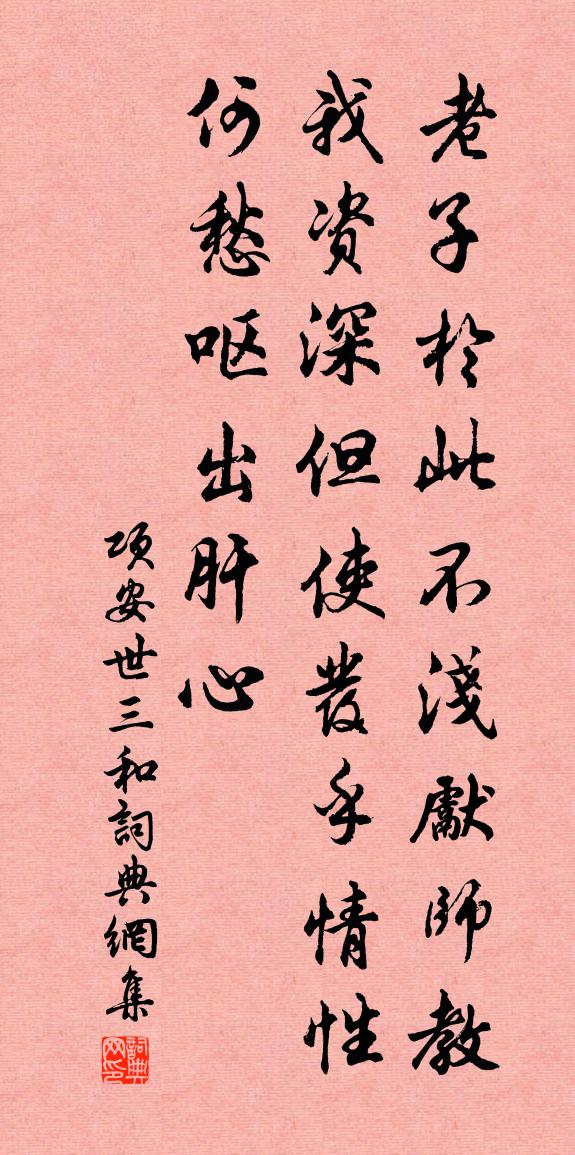 老子於此不淺獻師教
我资深但使發乎情性
何愁呕出肝心
项安世三和詞典網集
詞典網印